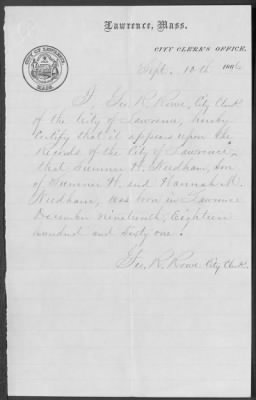 Lawrence, Mass.
CITY CLERK'S OFFICE,
CITY OF LAWRENCE
MASS.
Sept. 10th 1886
I, Geo. R. Rowe, City Clerk
of the City of Lawrence, hereby
Certify that it appears upon the
Records of the City of Lawrence,
that Sumner H. Needham, Son
of Sumner H. and Hannah M.
Needham, was born in Lawrence
December nineteenth, Eighteen
hundred and Sixty one.
Geo. R. Rowe City Clerk.